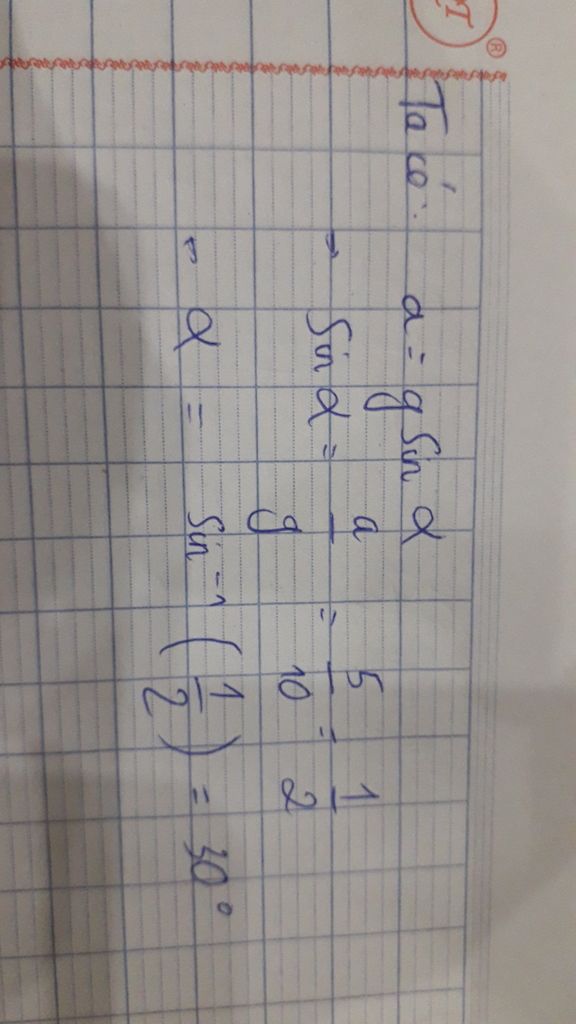 Ta có: a = g sin α
→ sin α = a/g = 5/10 = 1/2
→ α = sin⁻¹ (1/2) = 30°